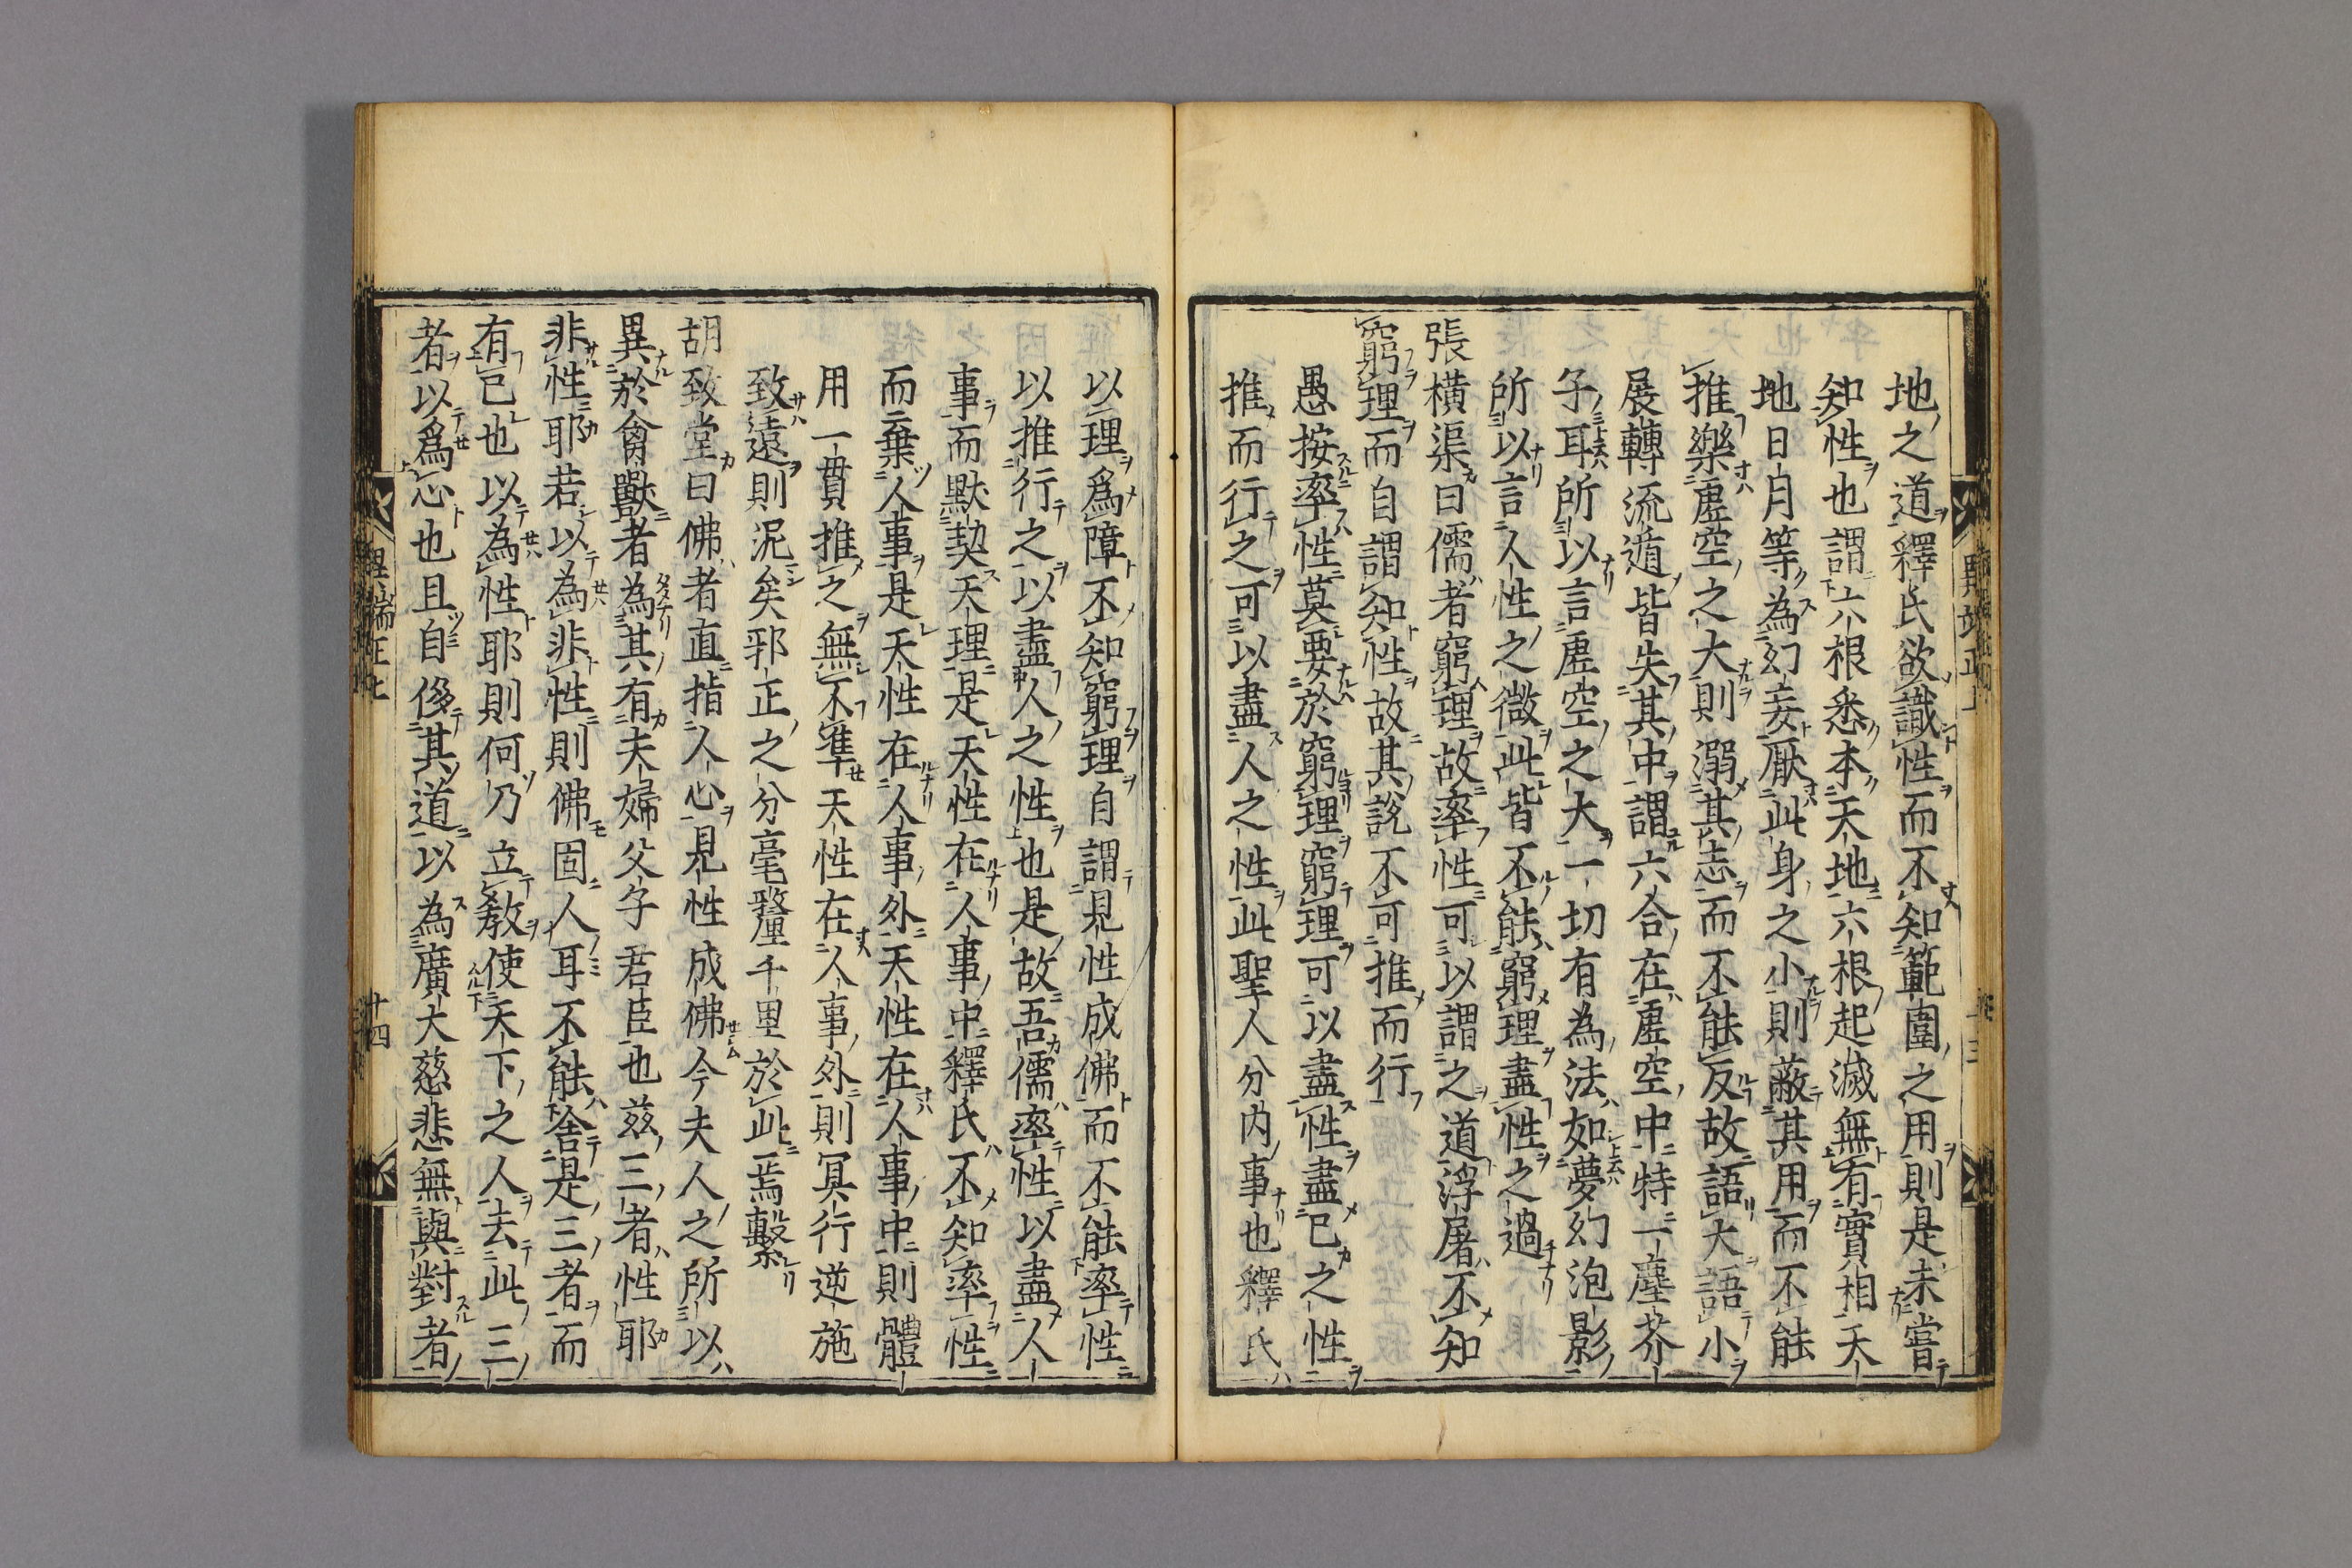 地之道釋氏欲識性而不知範圍之用則是未嘗
知性也謂六根悉本天地六根起滅無有實相天
地日月等為幻妄厭此身之小則蔽其用而不能
推樂虛空之大則溺其志而不能反故語大語小
展轉流遁皆失其中謂六合在虛空中特一塵芥
子耳所以言虛空之大一切有為法如夢幻泡影
所以言人性之微此皆不能窮理盡性之過
張橫渠曰儒者窮理故率性可以謂之道浮屠不知
窮理而自謂知性故其說不可推而行
愚按率性莫要於窮理窮理可以盡性盡已之性
推而行之可以盡人之性此聖人分内事也釋氏
以理爲障不知窮理自謂見性成佛而不能率性
以推行之以盡人之性也是故吾儒率性以盡人
事而默契天理是天性在人事中釋氏不知率性
而棄人事是天性在人事外天性在人事中則體
用一貫推之無不準天性在人事外則冥行逆施
致遠則泥矣邪正之分毫釐千里於此焉繫
胡致堂曰佛者直指人心見性成佛今夫人之所以
異於禽獸者為其有夫婦父子君臣也兹三者性耶
非性耶若以為非性則佛固人耳不能舍是三者而
有已也以為性耶則何乃立教使天下之人去此三
者以爲心也且自侈其道以為廣大慈悲無與對者
異端正上
十四